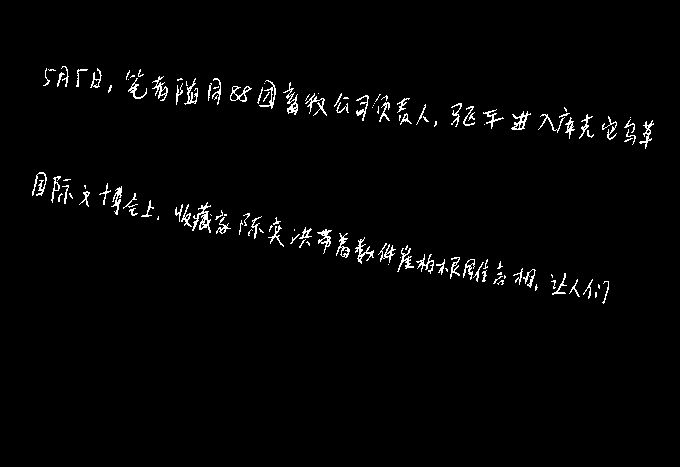 5月5日,笔者随同88团畜牧公司负责人,驱车进入库克它乌草
国际文博会上,收藏家陈奕洪带着数件崖柏根雕亮相,让人们